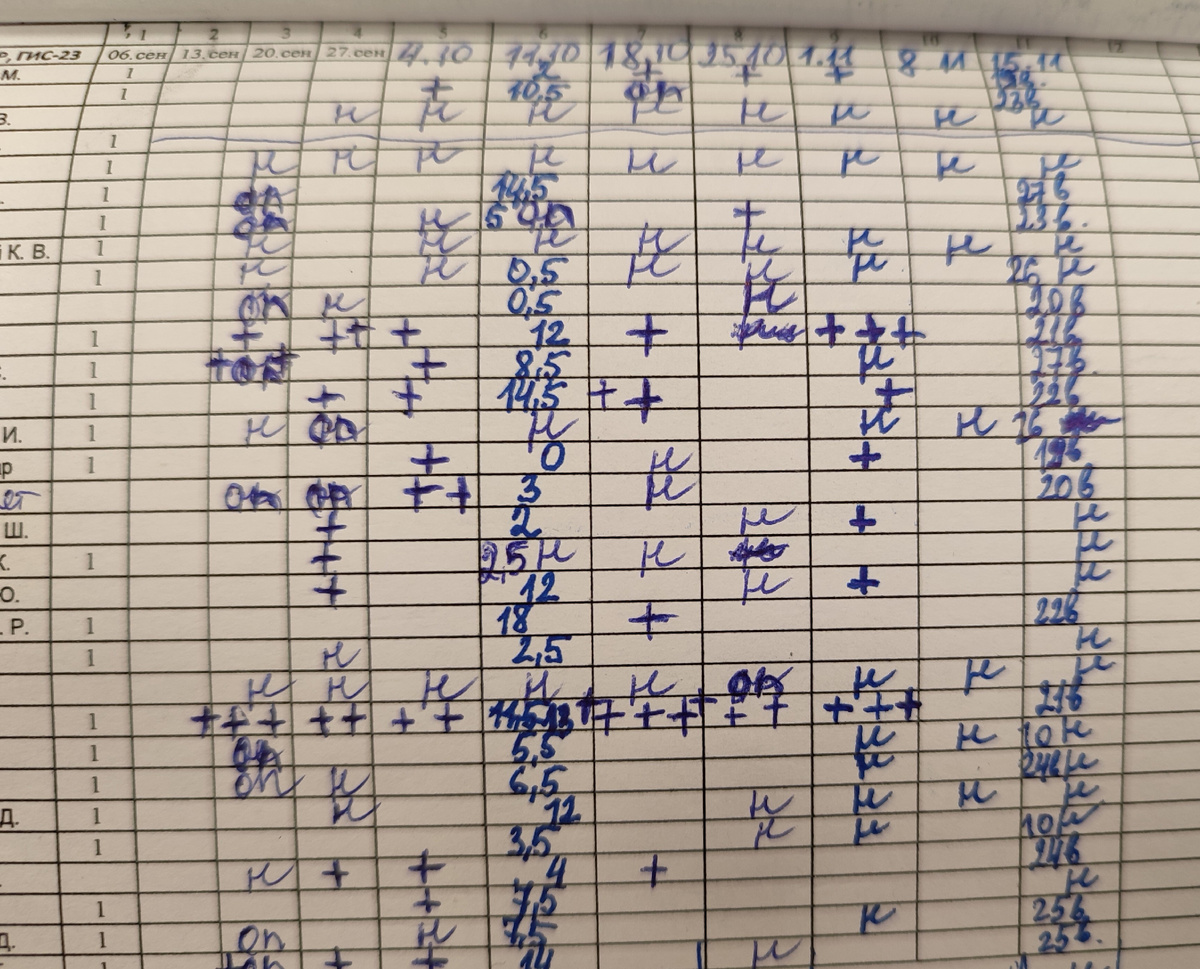 1 2 3 4 5 6 7 8 9 10 11 12
Р, ГИС-23 06.сен 13.сен 20.сен 27.сен 4.10 11.10 18.10 25.10 1.11 8 11 15.11
М. 1 2 + + +
1 + 10,5 оп 23в
В. н н н н н н н н
1
1 н н н н н н н н н
1 оп 14,5 27в
1 оп н 5 оп + 23в.
й К. В. 1 н н н н н н н н
1 н н 0,5 н н н 26 н
оп н 0,5 н 20в
1 + ++ + 12 + + + + 21в
1 + оп + + 8,5 н 27в
1 + + 14,5 + + + 22в
И. 1 н оп н н н 26
р 1 + 0 н + 19в
ет оп оп + + 3 н 20в
Ш. + 2 н + н
К. 1 + 2,5 н н н
Ю. + 12 н + н
. Р. 1 18 + 22в
1 н 2,5 н
н н н н н оп н н н
1 + + + + + + + + + + + + + + + + + 21в
1 оп 5,5 н н 10 н
1 оп н 6,5 н 24в н
Д. 1 н 12 н н н н
1 3,5 н н 10 н
н + + 4 + 24в
1 + 7,5 н
Д. 1 оп н 7,5 н 25в
1 + оп + + 14 н 25в.